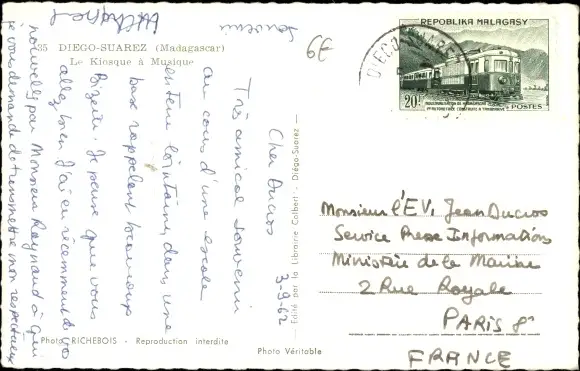 35 DIEGO-SUAREZ (Madagascar)
Le Kiosque à Musique
6€
REPOBLIKA MALAGASY
20F
POSTES
DIEGO-SUAREZ
3-9-62
Cher Ducros
Très amical souvenir
au cours d'une escale
en terre lointaine, dans une
rappelant beaucoup
Bizerte. Je pense que vous
allez bien. J'ai eu récemment de vos
nouvelles par Monsieur Raynaud à qui
je vous demande de transmettre mon respectueux
souvenir
Edité par la Librairie Colbert - Diégo-Suarez
Monsieur l'EV, Jean Ducros
Service Presse Informations
Ministère de la Marine
2 Rue Royale
PARIS 8e
FRANCE
Photo RICHEBOIS - Reproduction interdite
Photo Véritable